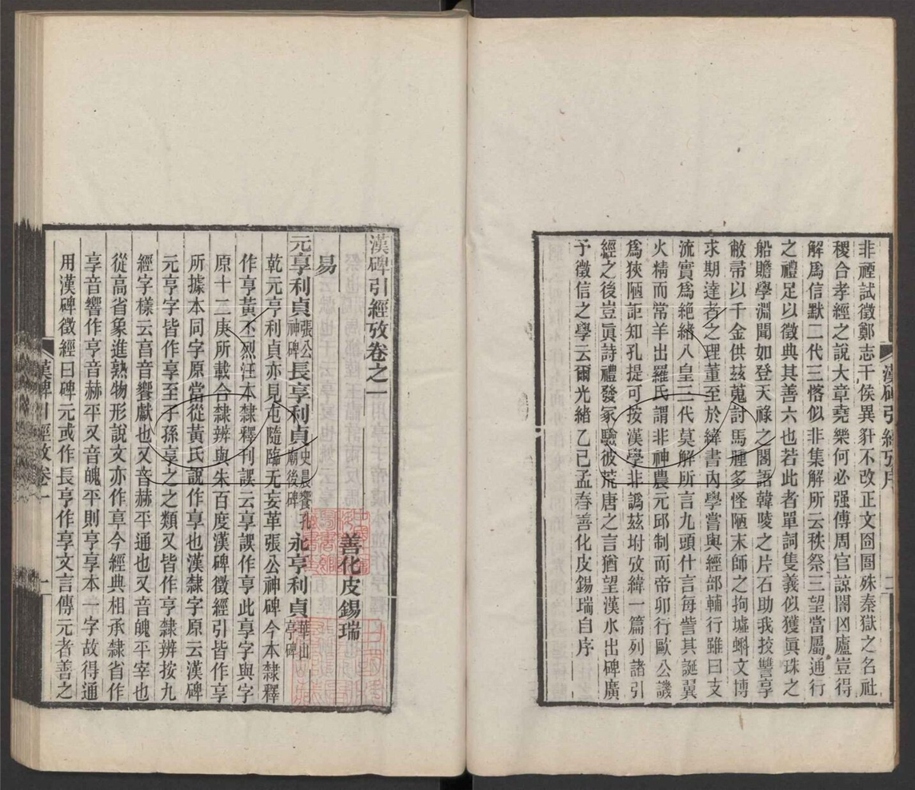 非禋試徵鄭志干侯異犴不改正文囹圄殊秦獄之名社
稷合孝經之說大章堯樂何必强傅周官諒闇凶廬豈得
解爲信默二代三愙似非集解所云秩祭三望當屬通行
之禮足以徵典其善六也若此者單詞隻義似獲眞珠之
船贍學淵聞如登天祿之閣語韓陵之片石助我技讐享
敝帚以千金供茲蒐討馬腫多怪陋末師之拘墟蝌文博
求期達者之理董至於緯書內學嘗與經部輔行雖曰支
流實爲絶緖八皇三代莫解所言九頭什言每訾其誕翼
火精而常羊出羅氏謂非神農元邱制而帝卯行歐公譏
爲狹陋詎知孔提可按漢學非譌茲坿攷緯一篇列諸引
經之後豈眞詩禮發冢驗彼荒唐之言猶望漢水出碑廣
予徵信之學云爾光緒乙巳孟春善化皮錫瑞自序
漢碑引經攷序
二
漢碑引經攷卷之一
善化皮錫瑞
易
元亨利貞張公神碑長亨利貞史晨饗孔廟後碑永亨利貞華山亭碑
乾元亨利貞亦見屯隨臨无妄革張公神碑今本隸釋
作亨黃丕烈汪本隸釋刊誤云享誤作亨此享字與字
原十二庚所載合隸辨與朱百度漢碑徵經引皆作享
所據本同字原當從黃氏說作享也漢隸字原云漢碑
元亨字皆作享至子孫享之之類又皆作亨隸辨按九
經字樣云亯音響獻也又音赫平通也又音魄平宰也
從高省象進熟物形說文亦作亯今經典相承隸省作
享音響作亨音赫平又音魄平則亨享本一字故得通
用漢碑徵經曰碑元或作長亨作享文言傳元者善之
漢碑引經攷卷一
一